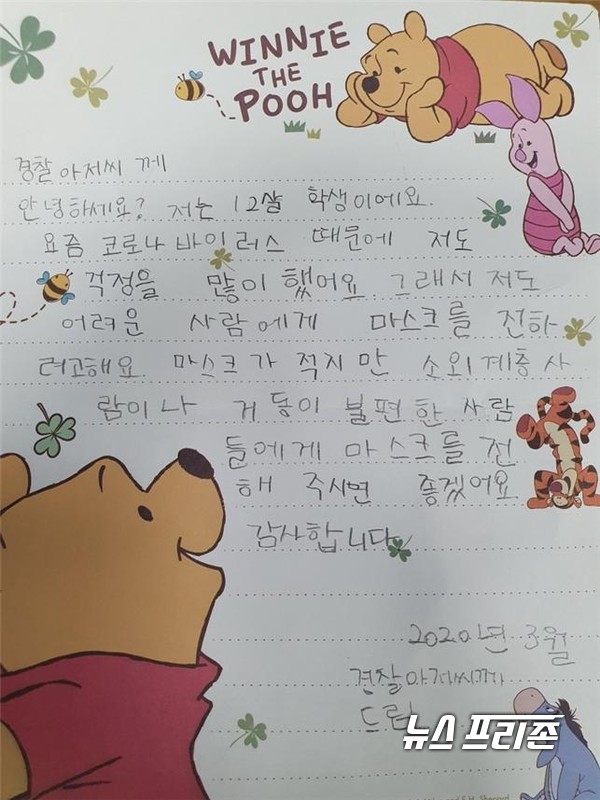 WINNIE
THE
POOH
경찰아저씨 께
안녕하세요? 저는 12살 학생이에요.
요즘 코로나 바이러스 때문에 저도
걱정을 많이 했어요 그래서 저도
어려운 사람에게 마스크를 전하
려고해요 마스크가 적지만 소외계층 사
람이나 거동이 불편한 사람
들에게 마스크를 전
해 주시면 좋겠어요
감사합니다
2020년 3월
경찰아저씨께
드림
뉴스 프리존